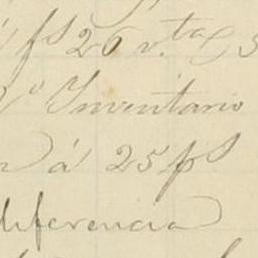 á fs 26 v.ta
Inventario
á 25 ps
diferencia